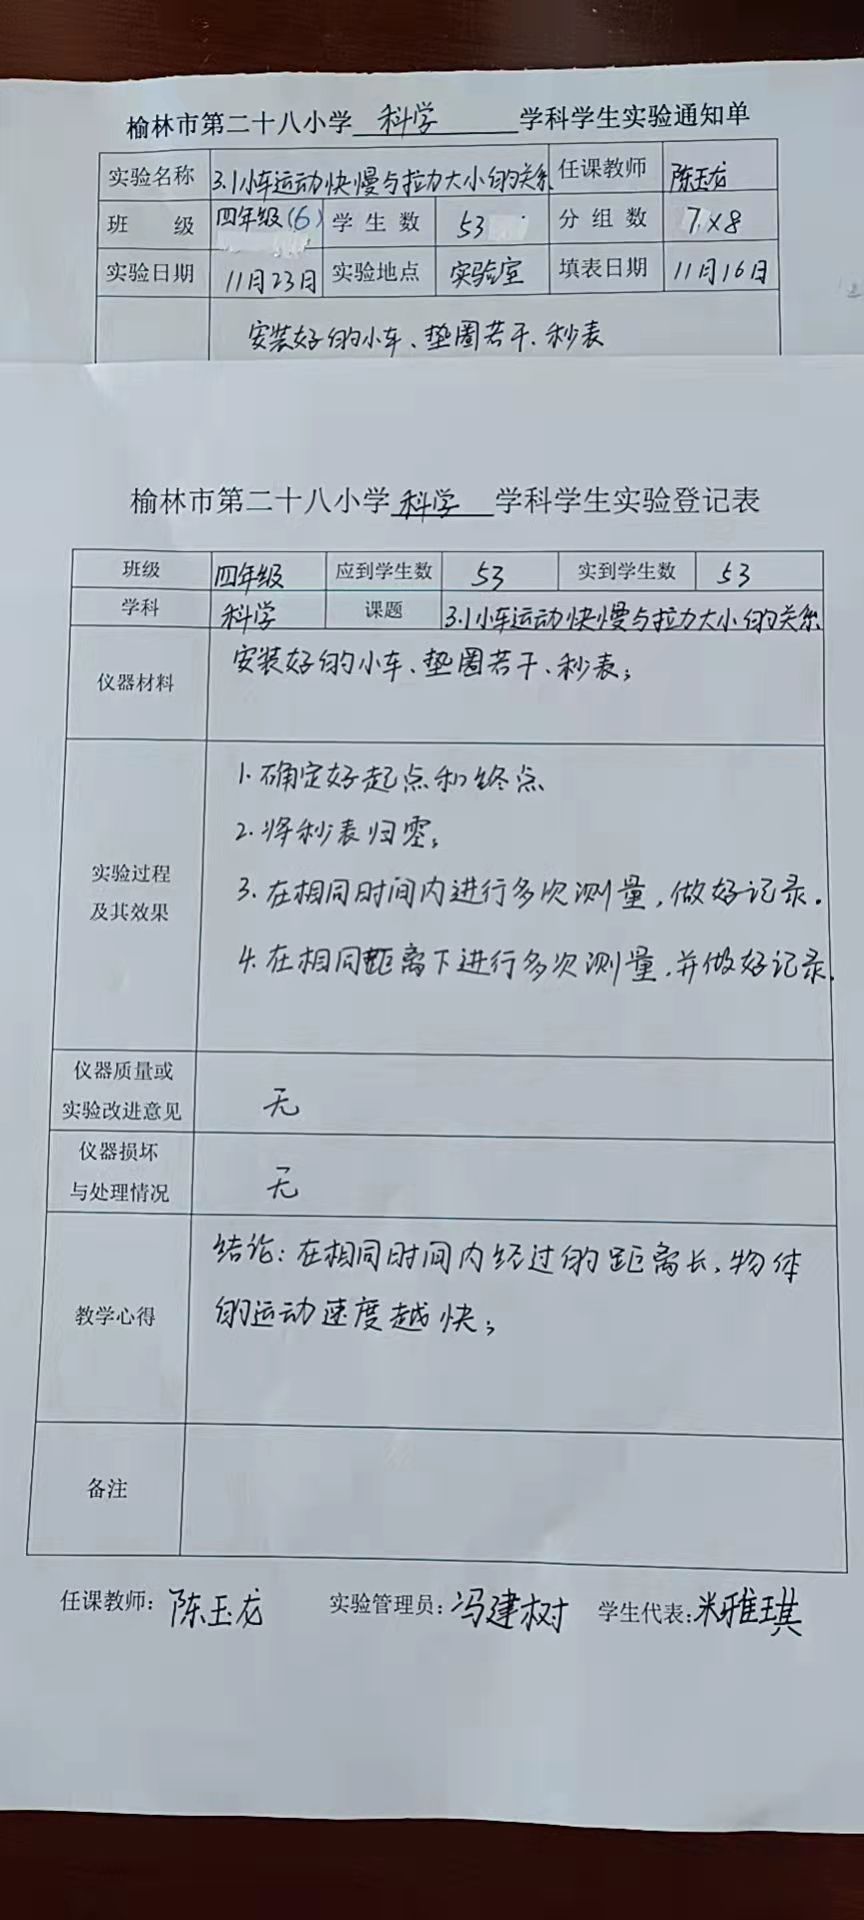 榆林市第二十八小学 科学 学科学生实验通知单
实验名称 3.1小车运动快慢与拉力大小的关系 任课教师 陈玉龙
班 级 四年级(6) 学生数 53 分组数 7×8
实验日期 11月23日 实验地点 实验室 填表日期 11月16日
安装好的小车、垫圈若干、秒表
榆林市第二十八小学 科学 学科学生实验登记表
班级 四年级 应到学生数 53 实到学生数 53
学科 科学 课题 3.1小车运动快慢与拉力大小的关系
仪器材料 安装好的小车、垫圈若干、秒表;
实验过程
及其效果
1.确定好起点和终点
2.将秒表归零;
3.在相同时间内进行多次测量,做好记录.
4.在相同距离下进行多次测量,并做好记录.
仪器质量或
实验改进意见
无
仪器损坏
与处理情况
无
教学心得
结论:在相同时间内经过的距离长,物体
的运动速度越快;
备注
任课教师:陈玉龙 实验管理员:冯建树 学生代表:米雅琪